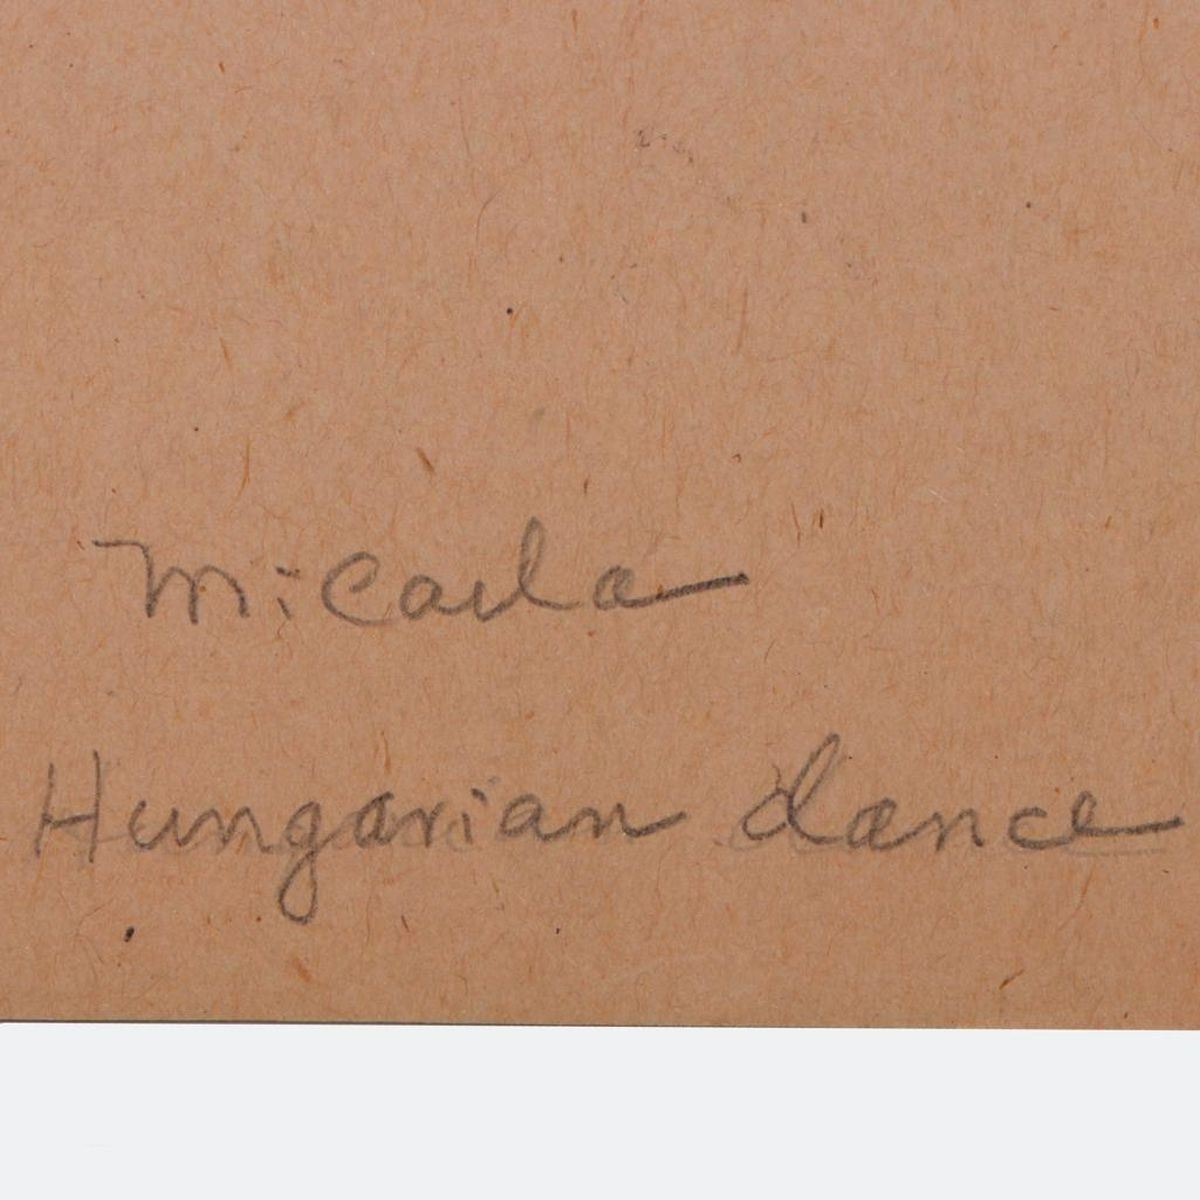 Micaela
Hungarian dance